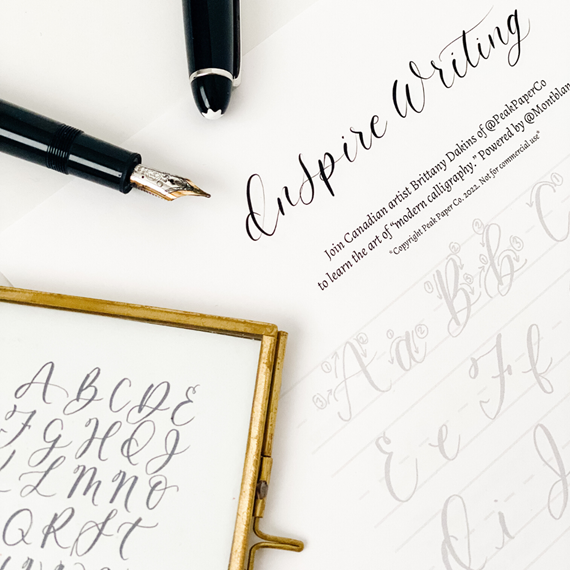 Inspire Writing
Join Canadian artist Brittany Dakins of @PeakPaperCo
to learn the art of "modern calligraphy." Powered by @Montblan
*Copyright Peak Paper Co. 2022. Not for commercial use*
A a B b C
E e F f
i J
A B C D E
F G H I J
L M N O
Q R S T